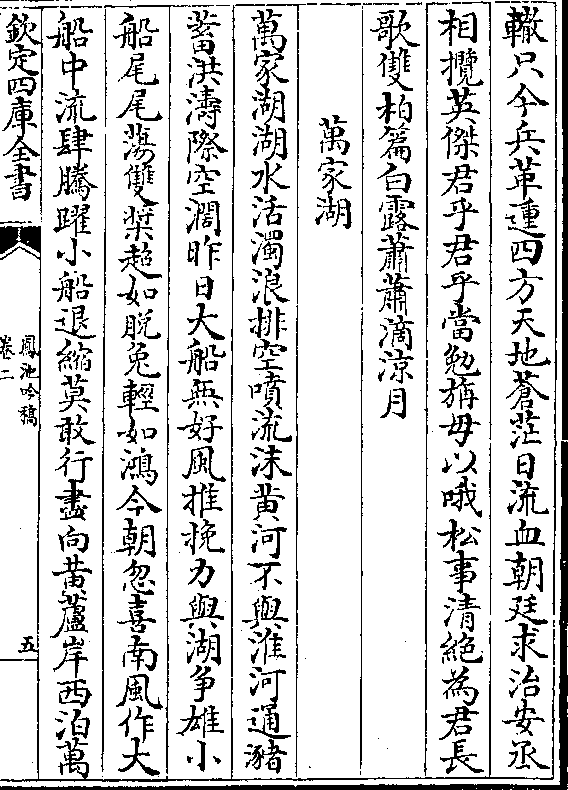 轍只今兵革連四方天地蒼茫日流血朝廷求治安丞
相攬英傑君乎君乎當勉旃毋以哦松事清絶為君長
歌雙柏篇白露蕭蕭滴涼月
萬家湖
萬家湖湖水活濁浪排空噴流沫黄河不與淮河通瀦
蓄洪濤際空濶昨日大船無好風推挽力與湖争雄小
船尾尾蕩雙槳超如脱兔輕如鴻今朝忽喜南風作大
船中流肆騰躍小船退縮莫敢行盡向黄蘆岸西泊萬
欽定四庫全書
鳳池吟稿
卷二
五